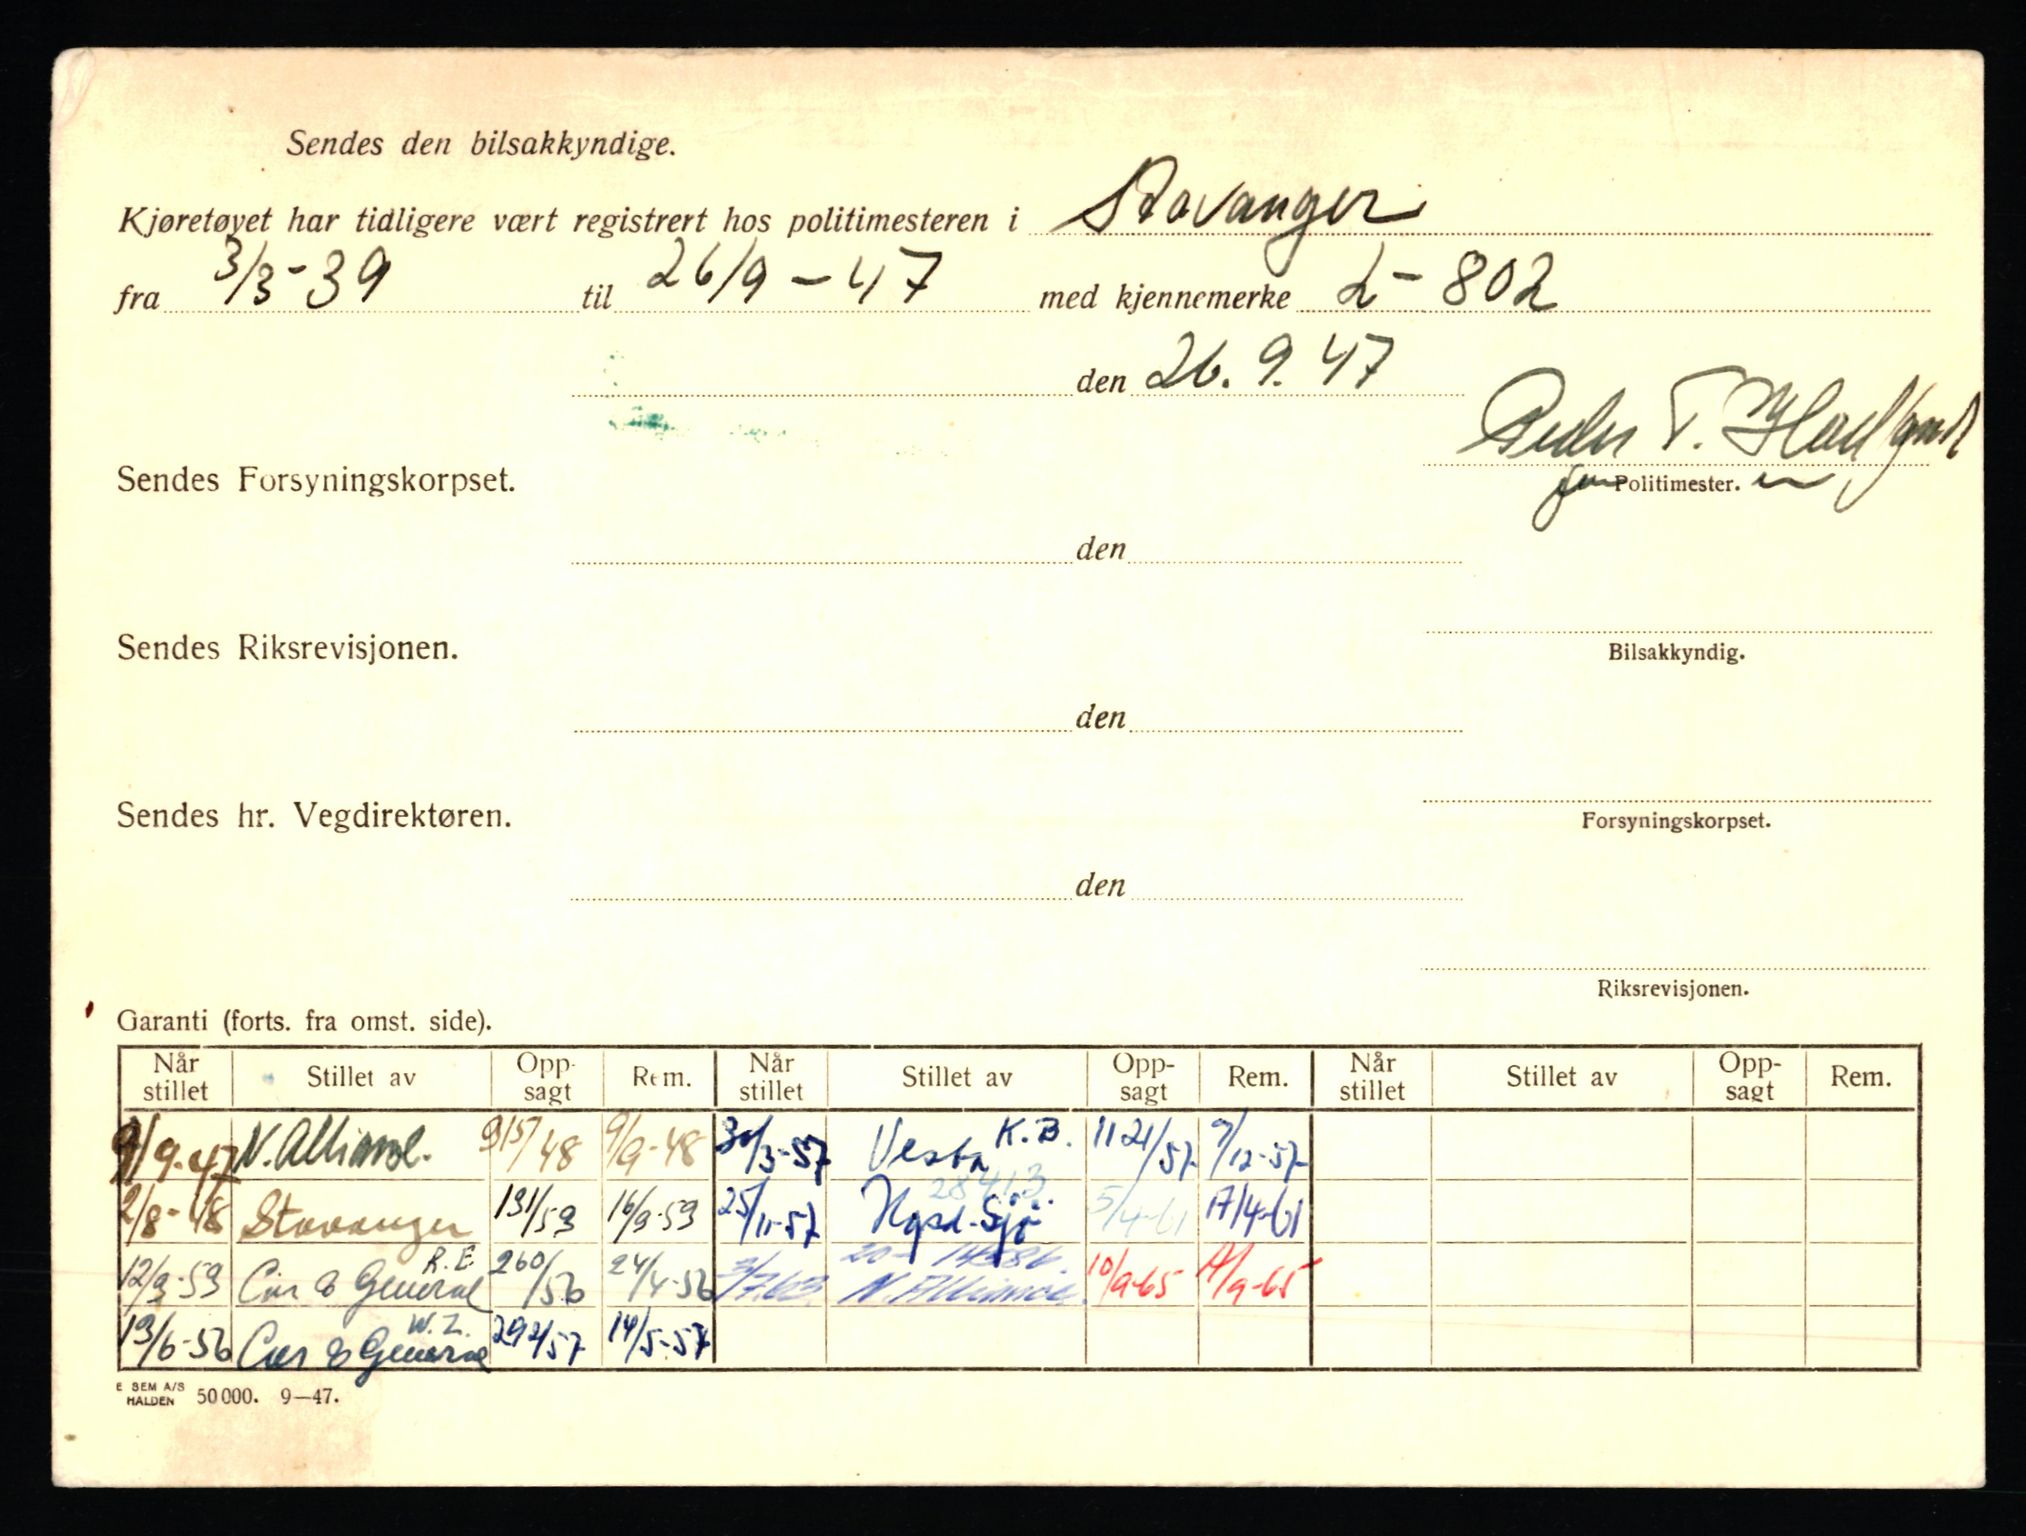 Sendes den bilsakkyndige.
Kjøretøyet har tidligere vært registrert hos politimesteren i Stavanger
fra 3/3-39 til 26/9-47 med kjennemerke L-802
den 26.9.47
Peder T.
Sendes Forsyningskorpset.
Politimester.
den
Sendes Riksrevisjonen.
Bilsakkyndig.
den
Sendes hr. Vegdirektøren.
Forsyningskorpset.
den
Riksrevisjonen.
Garanti (forts. fra omst. side).
Når stillet Stillet av Opp-sagt Rem. Når stillet Stillet av Opp-sagt Rem. Når stillet Stillet av Opp-sagt Rem.
9/9-47 N. Alliance. 9157/48 9/9-48 30/3-57 Vesta K.B. 1121/57 9/12-57
28413.
2/8-48 Stavanger 131/53 16/9-53 25/11-57 Ngsd. Sjø 5/4-61 17/4-61
12/9-53 Car & General R.E. 260/56 24/4-56 3/7.63. N. Alliance. 10/9-65 /9-65
13/6-56 Car & General W.Z. 292/57 14/5-57
E SEM A/S HALDEN 50 000. 9—47.